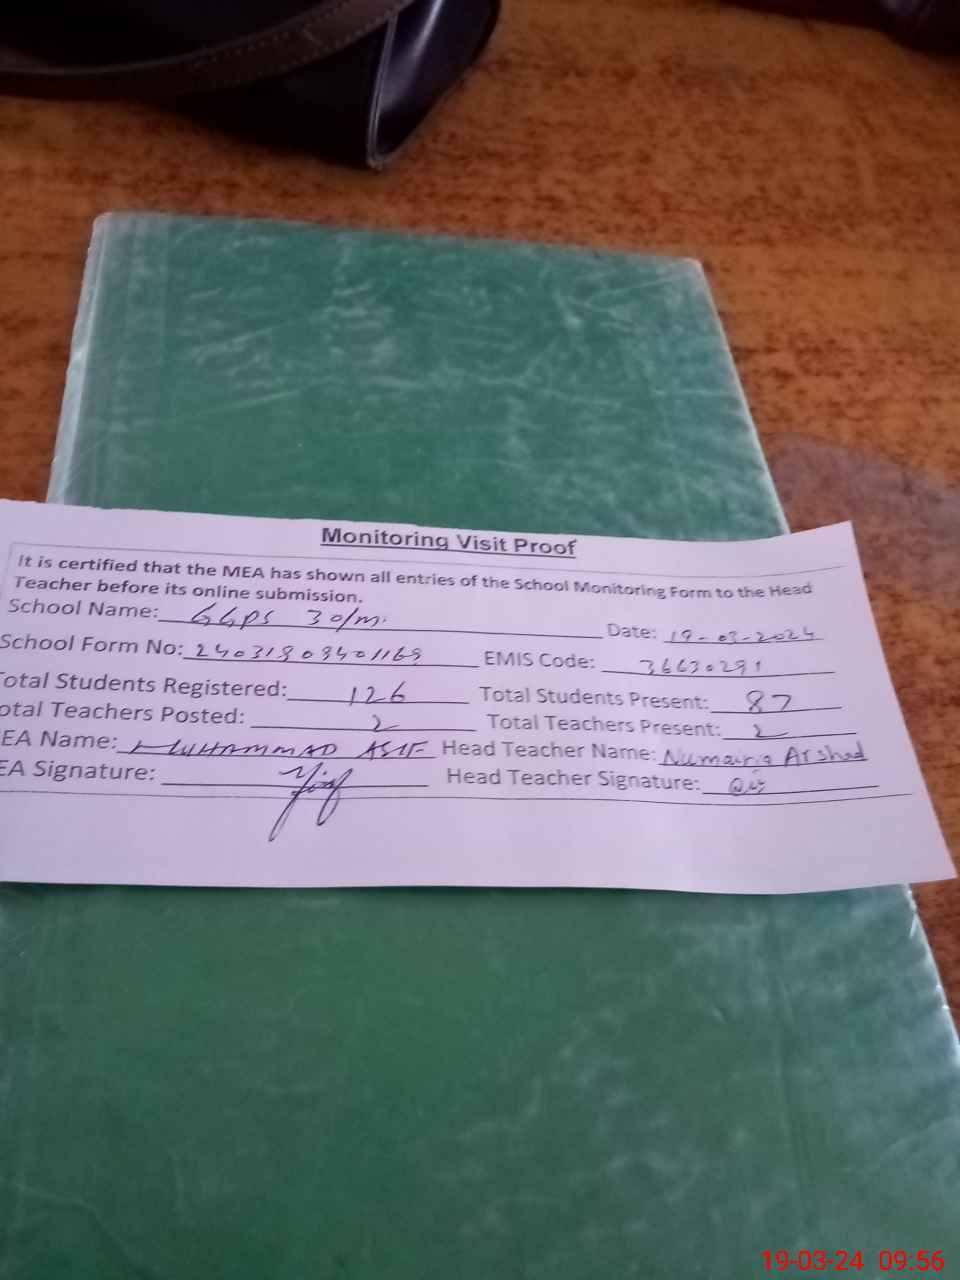 Monitoring Visit Proof
It is certified that the MEA has shown all entries of the School Monitoring Form to the Head
Teacher before its online submission.
School Name: GGPS 30/m. Date: 19-03-2024
School Form No: 24031909401169 EMIS Code: 36630291
otal Students Registered: 126 Total Students Present: 87
otal Teachers Posted: 2 Total Teachers Present: 2
EA Name: MUHAMMAD ASIF Head Teacher Name: Numaira Arshad
EA Signature: Head Teacher Signature:
19-03-24 09:56